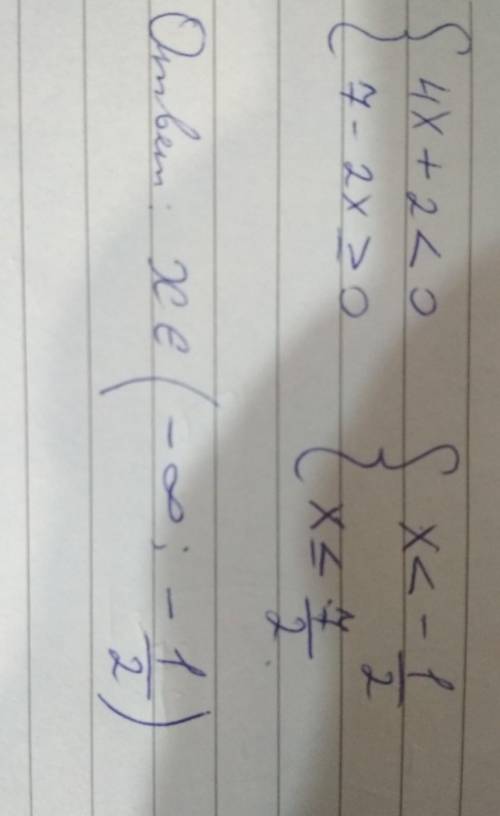 { 4x + 2 < 0
{ 7 - 2x ≥ 0
{ x < - 1/2
{ x ≤ 7/2
Ответ: x ∈ ( -∞ ; - 1/2 )